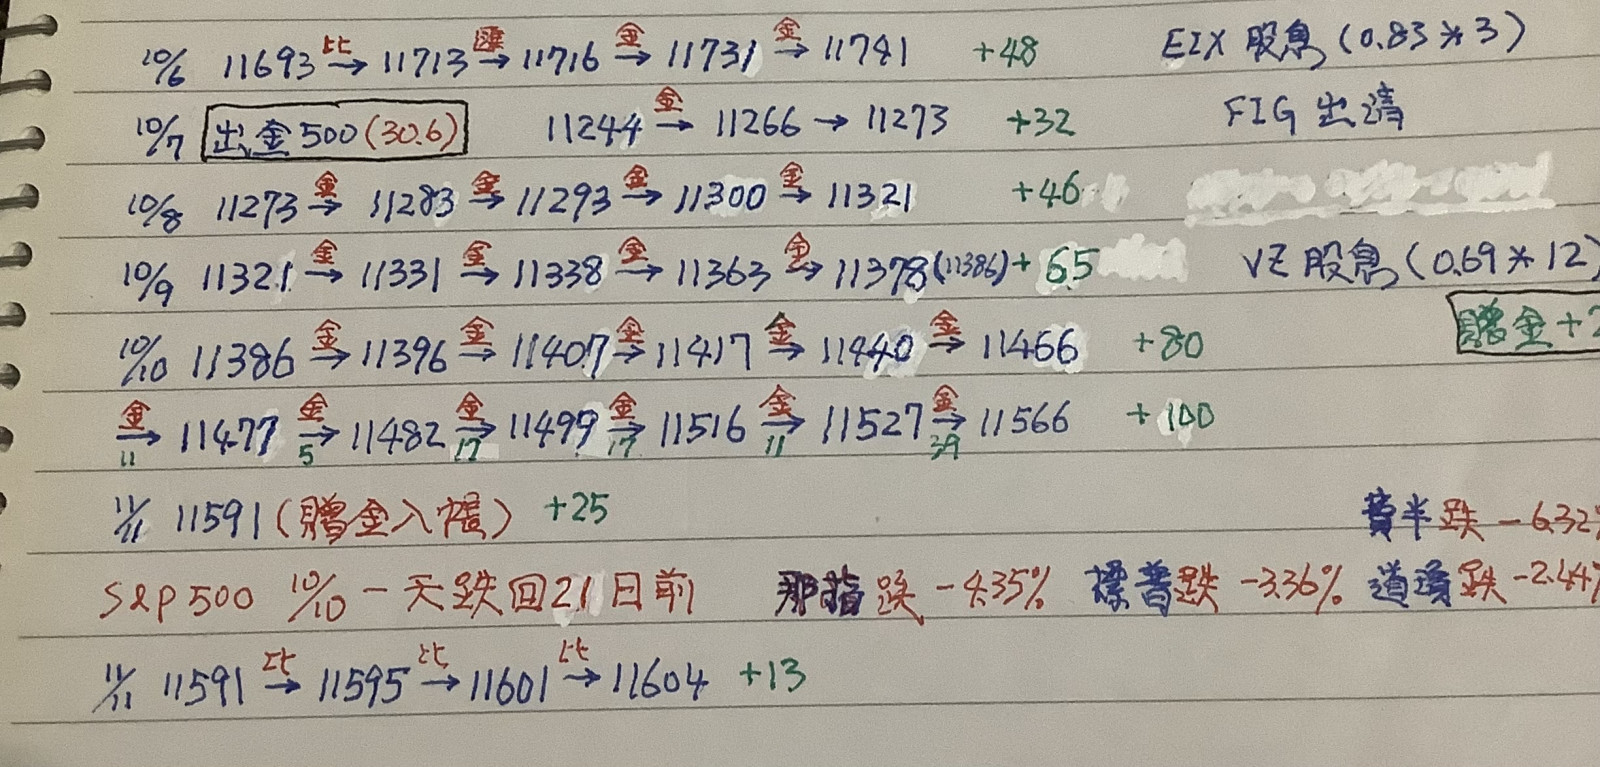 10/6 11693 比→ 11713 匯→ 11716 金→ 11731 金→ 11741 +48 EIX 股息 (0.83*3)
10/7 出金500(30.6) 11244 金→ 11266 → 11273 +32 FIG 出清
10/8 11273 金→ 11283 金→ 11293 金→ 11300 金→ 11321 +46
10/9 11321 金→ 11331 金→ 11338 金→ 11363 金→ 11378(11386) +65 VZ 股息 (0.69*12)
10/10 11386 金→ 11396 金→ 11407 金→ 11417 金→ 11440 金→ 11466 +80 贈金+2
金→ 11 11477 金→ 5 11482 金→ 17 11499 金→ 17 11516 金→ 11 11527 金→ 39 11566 +100
11/11 11591(贈金入帳) +25 費半跌 -6.32%
S&P500 10/10 一天跌回21日前 那指跌 -4.35% 標普跌 -3.36% 道瓊跌 -2.44%
11/11 11591 比→ 11595 比→ 11601 比→ 11604 +13